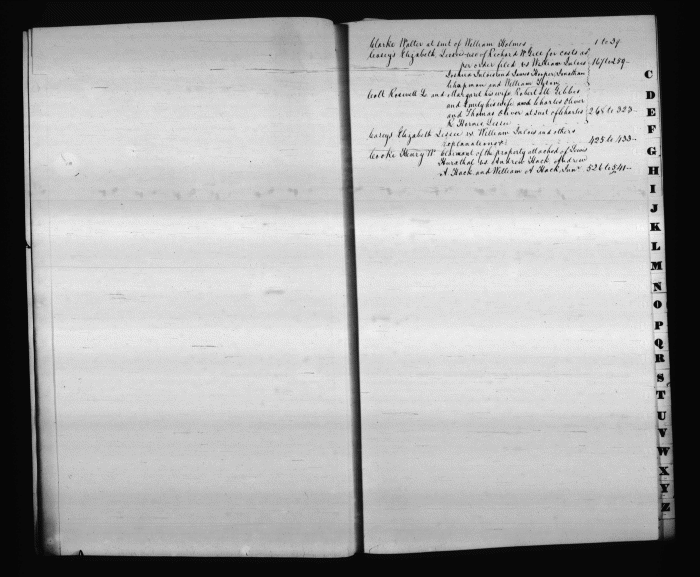 Clarke Walter at suit of William Holmes 1 to 39
Caseys Elizabeth Lessee use of Richard W Gill for costs as
per order filed vs William Inloes 167 to 259
Joshua Inloes and Lewis Kuper, Jonathan
Chapman and William Tyson
Colt Roswell L and Margaret his wife Robert M Gibbes
and Emily his wife and Charles Oliver
and Thomas Oliver at suit of Charles 268 to 323
R Lessee
Caseys Elizabeth Lessee vs William Inloes and others
explanations 425 to 433
Cooke Henry W Claimant of the property attached of Lewis
vs Andrew Hack Andrew
A Hack and William A Hack Junr 526 to 541
C
D
E
F
G
H
I
J
K
L
M
N
O
P
Q
R
S
T
U
V
W
X
Y
Z